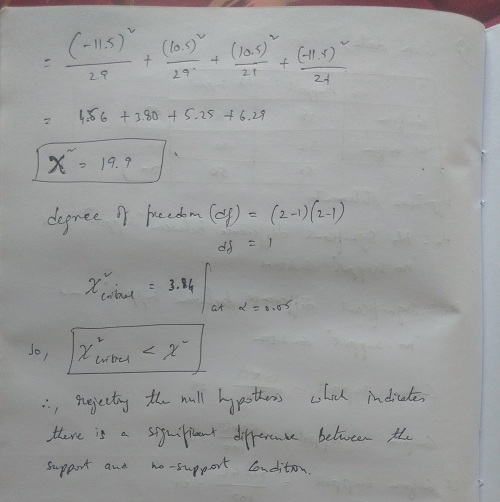 = (-11.5)²/29 + (10.5)²/29 + (10.5)²/21 + (-11.5)²/21
= 4.56 + 3.80 + 5.25 + 6.29
χ² = 19.9
degree of freedom (df) = (2-1)(2-1)
df = 1
χ² critical = 3.84 | at α = 0.05
So, χ² critical < χ²
∴, rejecting the null hypothesis which indicates
there is a significant difference between the
support and no-support condition.